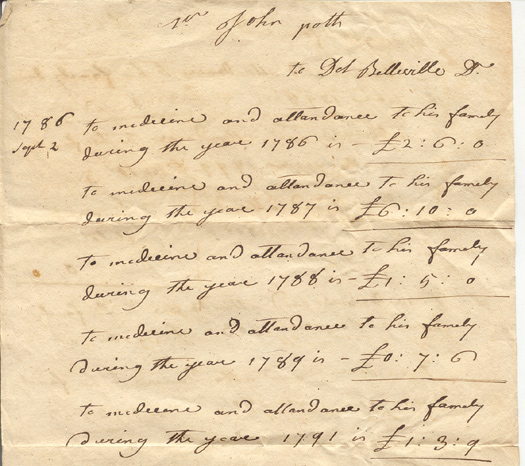 Mr John poth
to Dot Belleville Dr
1786 to medicine and attendance to his famely
Sept 2 during the year 1786 is - £2:6:0
to medicine and attendance to his famely
during the year 1787 is £6:10:0
to medicine and attendance to his famely
during the year 1788 is - £1:5:0
to medicine and attendance to his famely
during the year 1789 is - £0:7:6
to medicine and attendance to his famely
during the year 1791 is £1:3:9